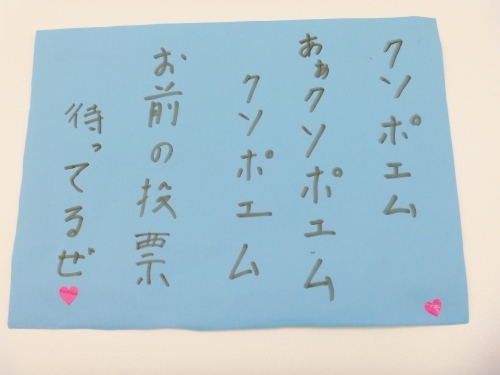 クソポエム
あぁクソポエム
クソポエム
お前の投票
待ってるぜ